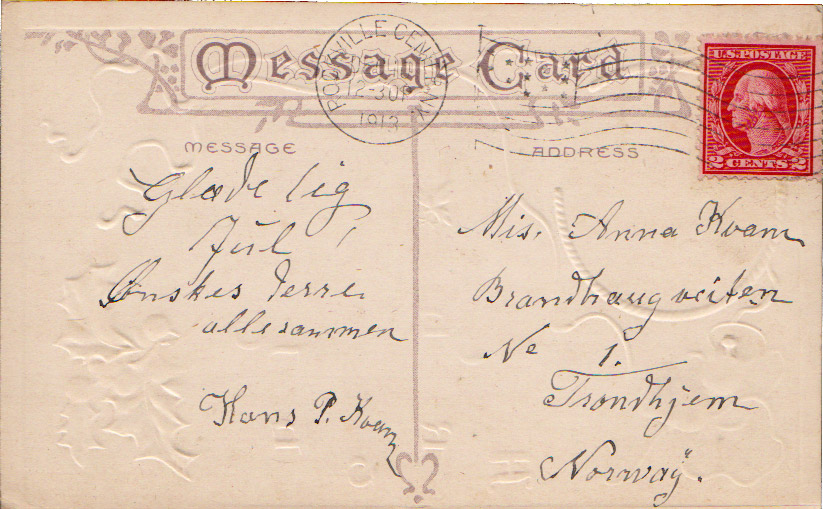 Message Card
ROCKVILLE CENTRE N.Y.
12-30P
1913
U.S. POSTAGE
2 CENTS 2
MESSAGE
Glæde lig
Jul!
Ønskes derre
allesammen
Hans P. Kvam
ADDRESS
Mis. Anna Kvam
Brandhaugveiten
No 1.
Trondhjem
Norway.